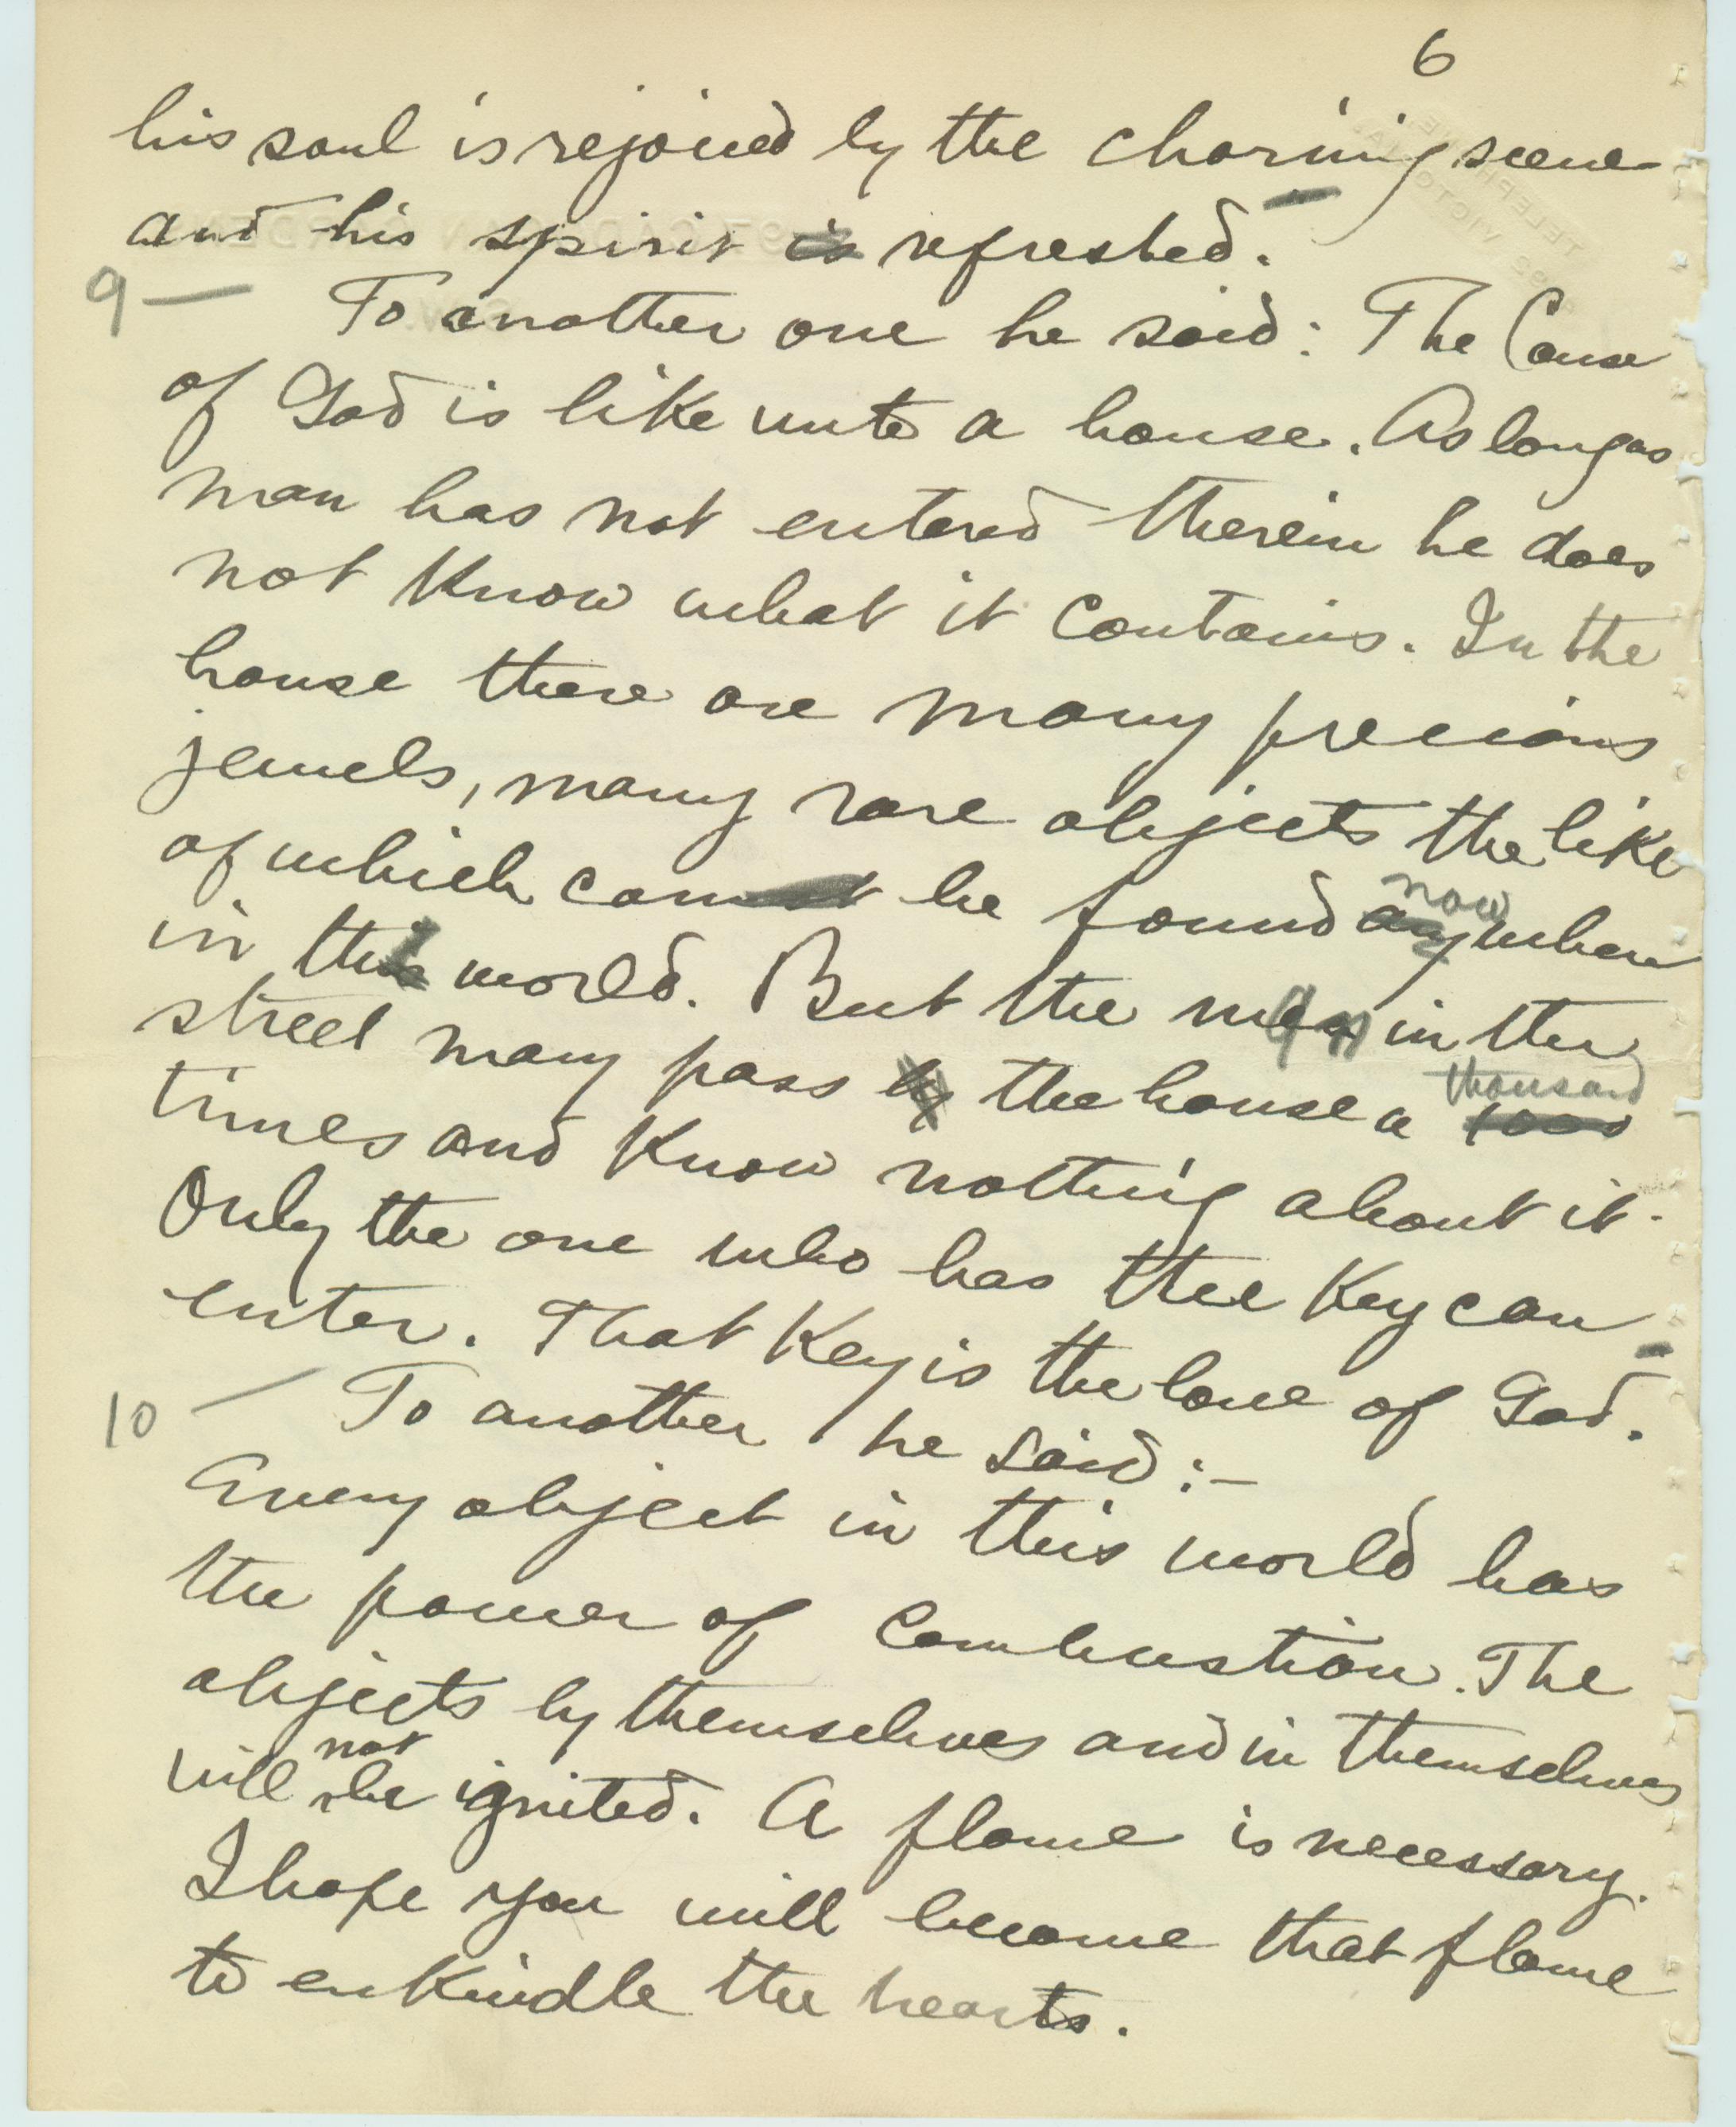 6
his soul is rejoiced by the charming scene
and his spirit is refreshed.
9 — To another one he said: The Cause
of God is like unto a house. As long as
man has not entered therein he does
not know what it contains. In the
house there are many precious
jewels, many rare objects the like
of which can be found nowhere
in the world. But the man in the
street may pass the house a thousand
times and know nothing about it.
Only the one who has the key can
enter. That key is the love of God.
10 — To another he said:—
Every object in this world has
the power of combustion. The
objects by themselves and in themselves
will not be ignited. A flame is necessary.
I hope you will become that flame
to enkindle the hearts.